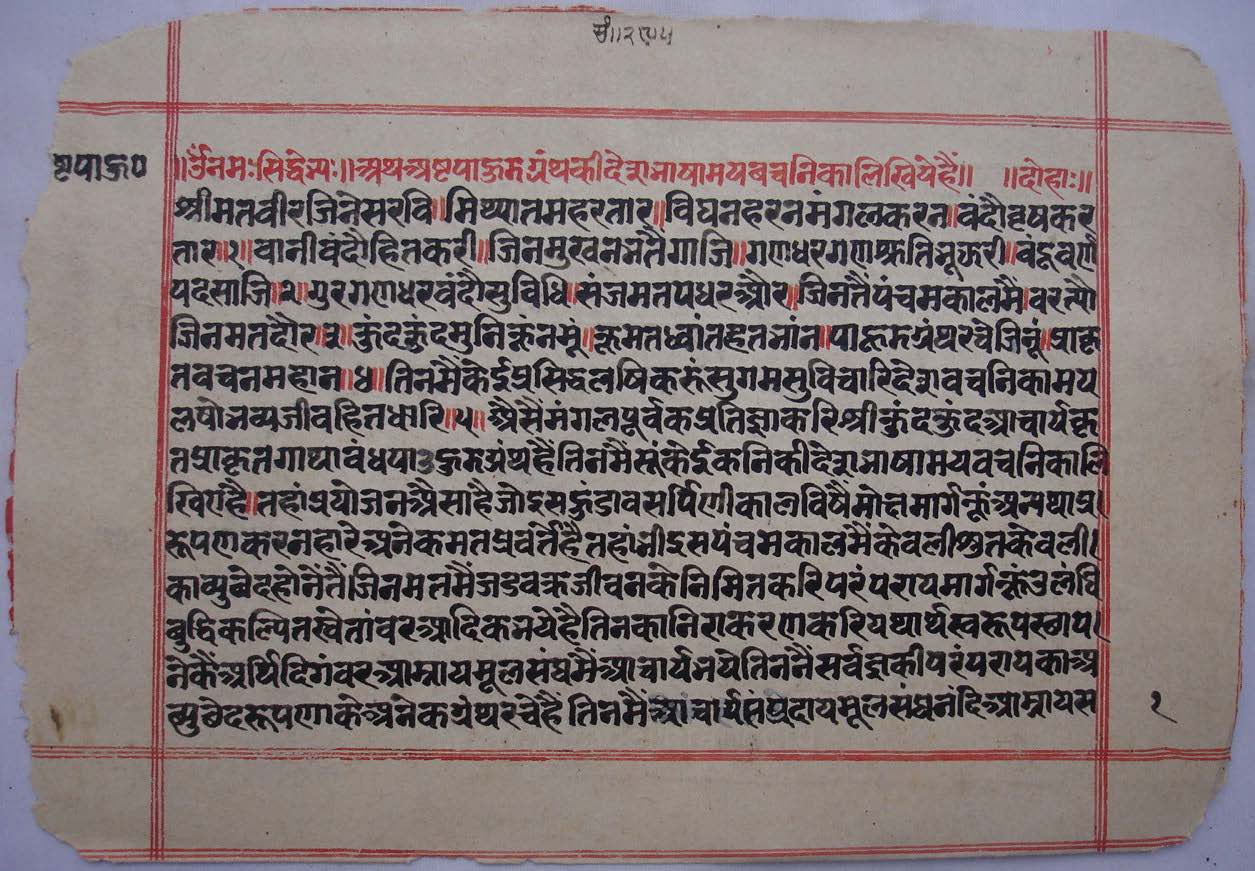 सं॥२९५५
ष्टपाऊ०
॥ॐनमःसिद्धेभ्यः॥अथअष्टपाऊडग्रंथकीदेशभाषामयवचनिकालिखियेहैं॥ ॥दोहाः॥
श्रीमतवीरजिनेसरवि॥मिथ्यातमहरतार॥विघनहरनमंगलकरन॥वंदौवृषकर
तार॥१॥वानीवंदौहितकरी॥जिनमुखनभतैगाजि॥गणधरगणश्रुतिभूऊरी॥वंदूवर्ण
पदसाजि॥२॥गुरगणधरवंदौसुविधि॥संजमतपधरऔर॥जिनतैंपंचमकालमैं॥वरत्यौ
जिनमतदौर॥३॥कुंदकुंदमुनिकूंनमूं॥कूमतध्वांतहतभांन॥पाऊडग्रंथरचेजिनूं॥प्राकृ
तवचनमहान॥४॥तिनमैंकेईप्रसिद्धलषिकरुंसुगमसुविचारिदेशवचनिकामय
लषोभव्यजीवहितधारि॥५॥अैसैमंगलपूर्वकप्रतिज्ञाकरिश्रीकुंदकुंदआचार्यकृ
तप्राकृतगाथाबंधपाऊडग्रंथहैंतिनमैंसूंकेईकनिकीदेशभाषामयवचनिकालि
खिएहै॥तहांप्रयोजनअैसाहैजोइसहुंडावसर्पिणीकालविषैमोक्षमार्गकूंअन्यथाप्र
रूपणकरनहारेअनेकमतप्रवर्तेहैतहांभीइसपंचमकालमैंकेवलीश्रुतकेवली
काव्युछेदहोनेंतैंजिनमतमैंजडवक्रजीवनकेनिमितकरिपरंपरायमार्गकूंउलंघि
बुद्धिकल्पितस्वेतांवरआदिकभयेहैतिनकानिराकरणकरियथार्थस्वरूपस्थाप
नेकैंअर्थिदिगंवरआम्नायमूलसंघमैंआचार्यभयेतिननैंसर्वज्ञकीपरंपरायकाअ
व्युछेदरूपणाकेअनेकग्रंथरचेहैंतिनमैंआचार्यसंप्रदायमूलसंघनंदिआम्नायस
१